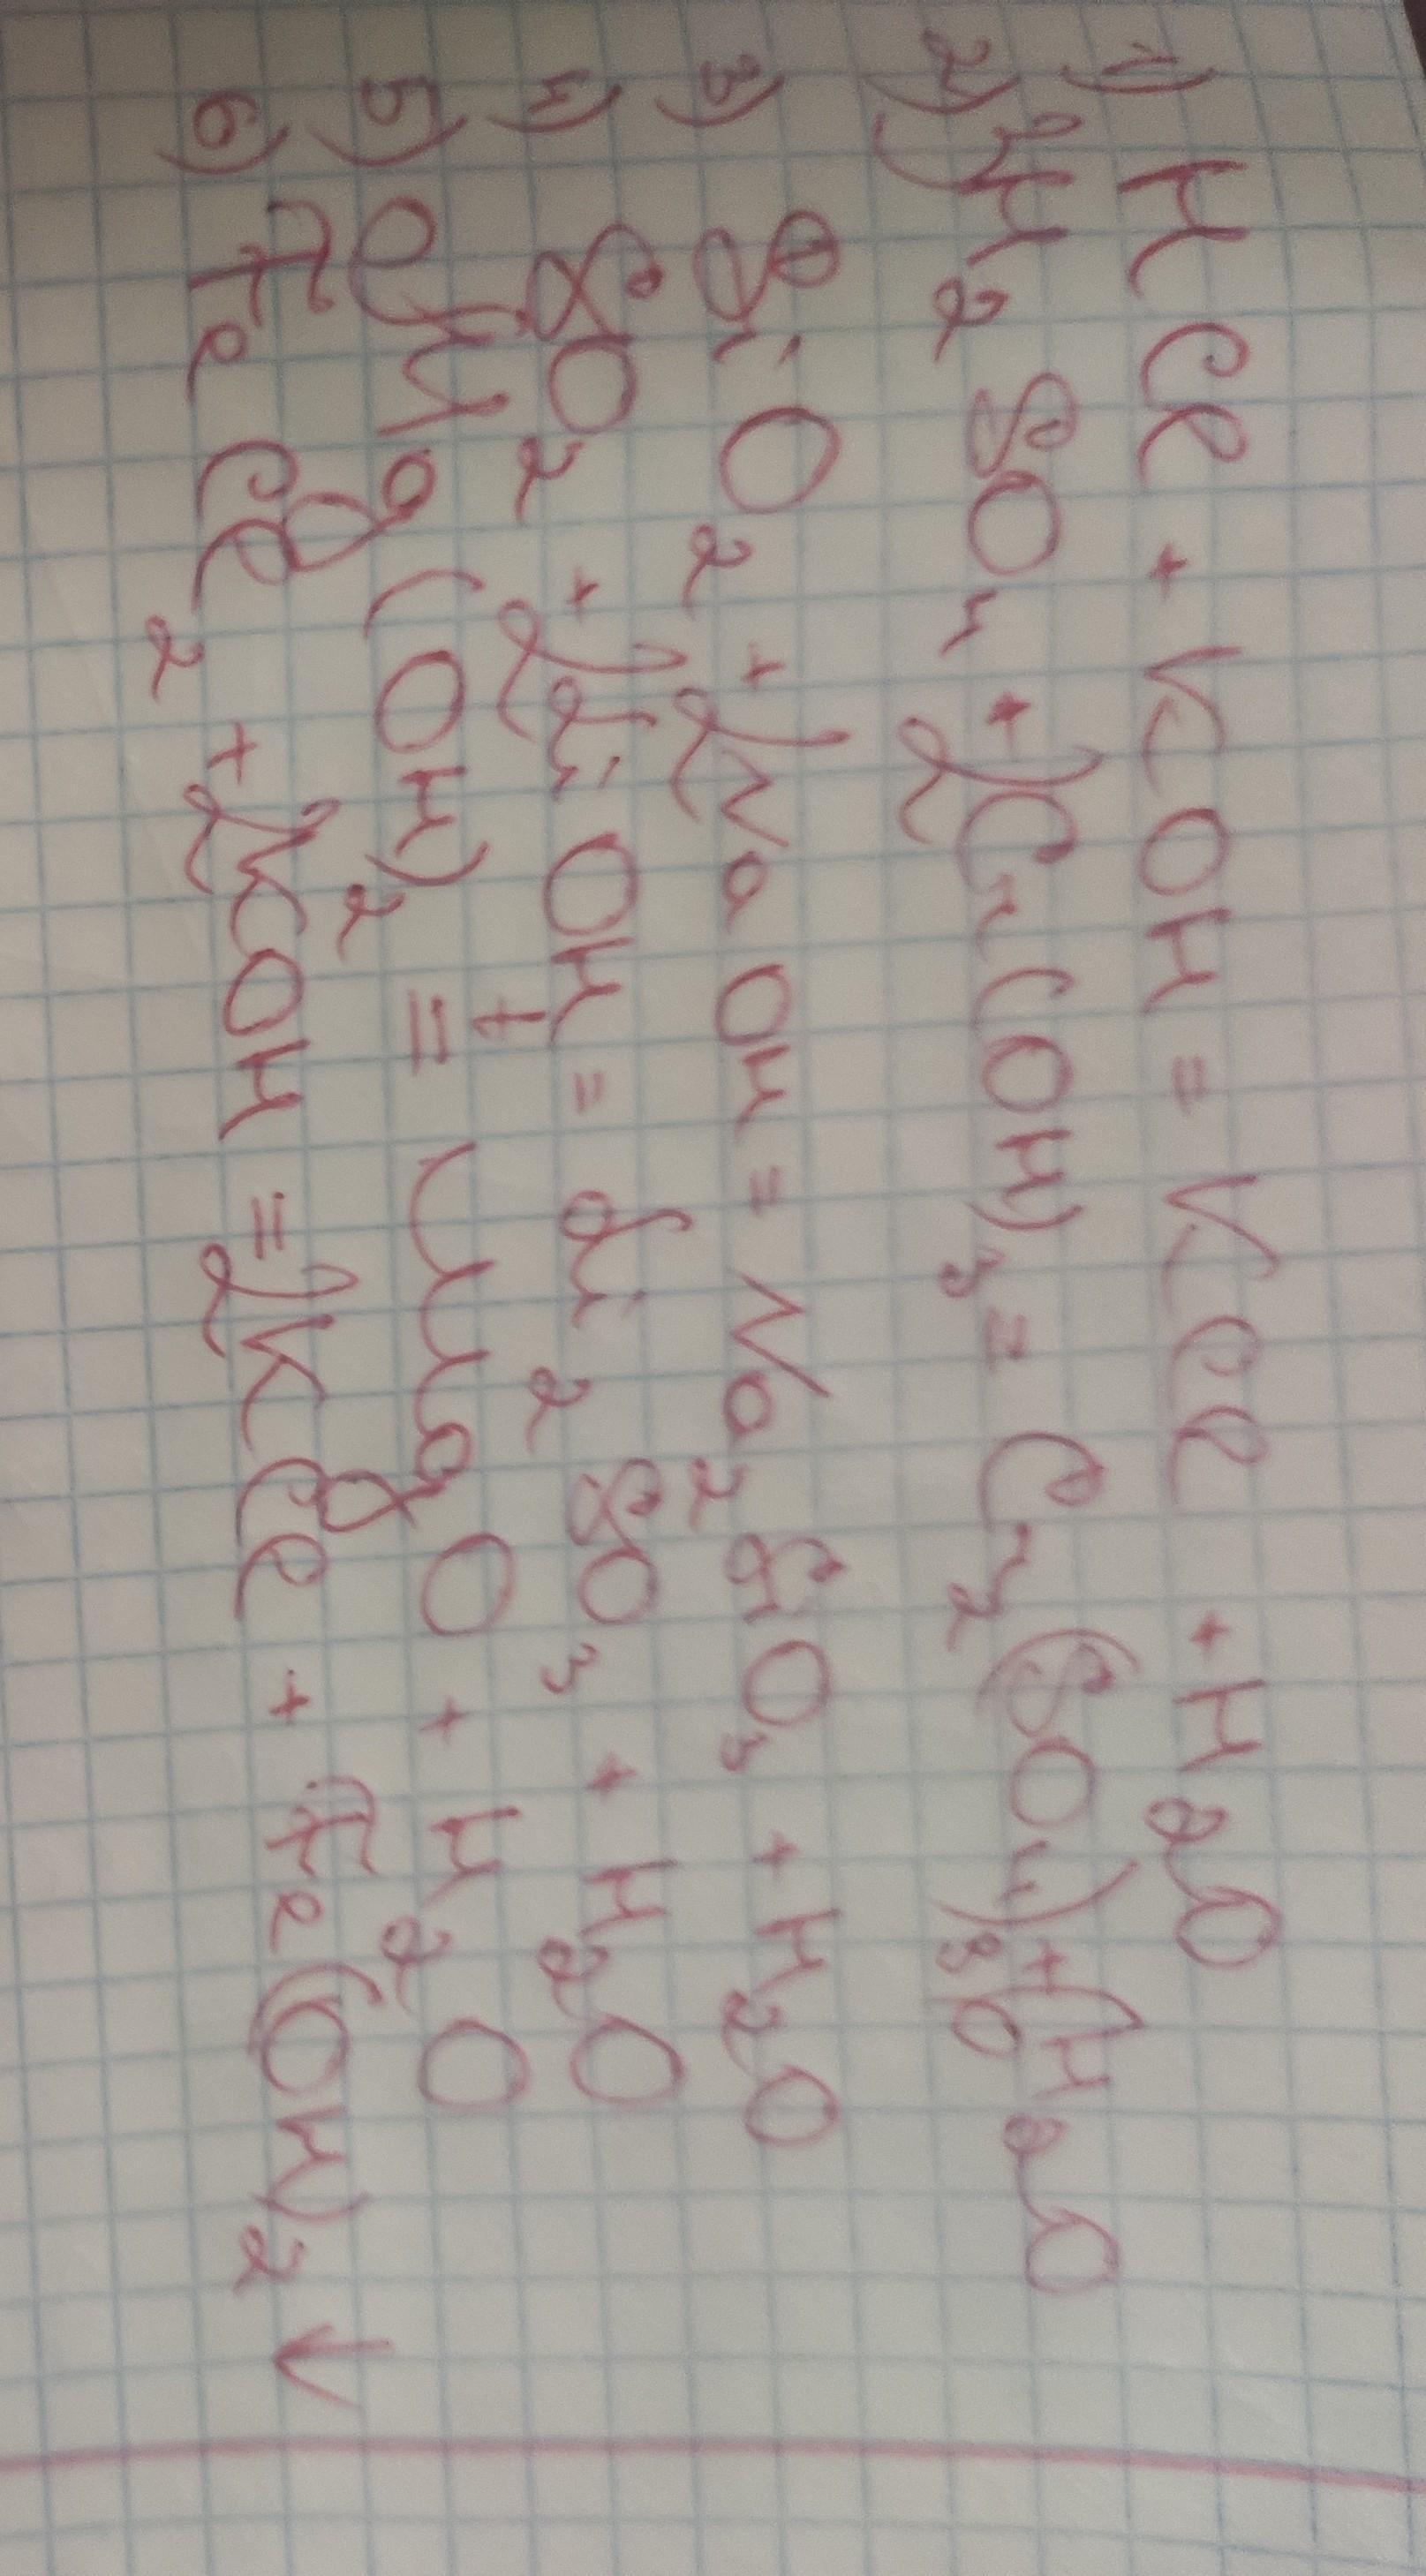 1) HCl + KOH = KCl + H2O
2) 3H2SO4 + 2Cr(OH)3 = Cr2(SO4)3 + 6H2O
3) SiO2 + 2NaOH = Na2SiO3 + H2O
4) SO2 + 2LiOH = Li2SO3 + H2O
5) Mg(OH)2 t= MgO + H2O
6) FeCl2 + 2KOH = 2KCl + Fe(OH)2 ↓